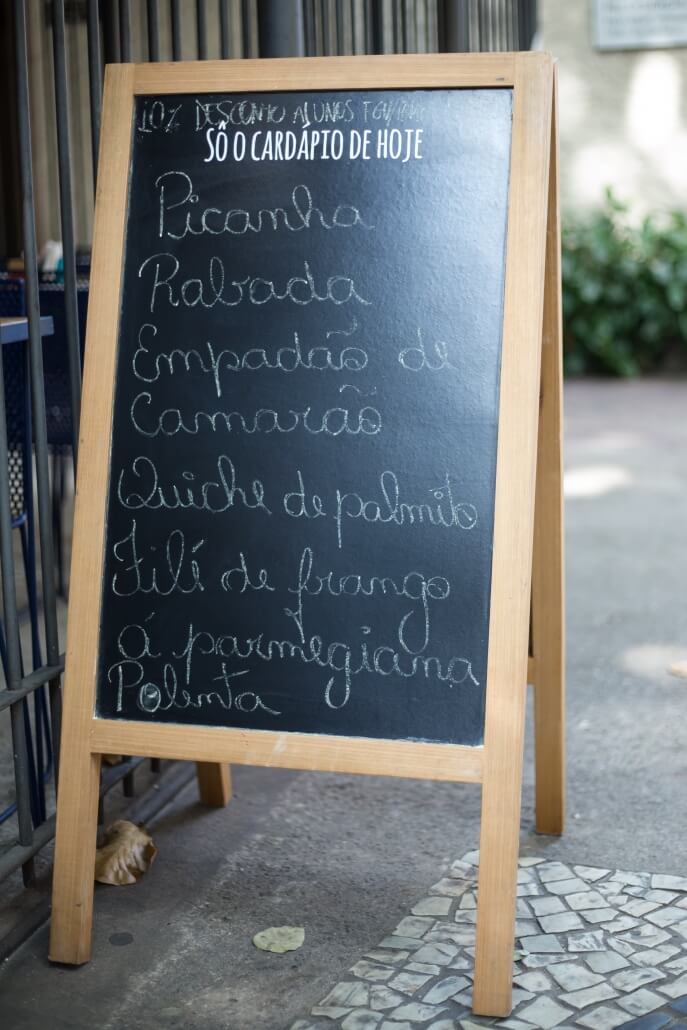 10% DESCONTO ALUNOS FGV
SÔ O CARDÁPIO DE HOJE
Picanha
Rabada
Empadão de
Camarão
Quiche de palmito
Filé de frango
á parmegiana
Polenta